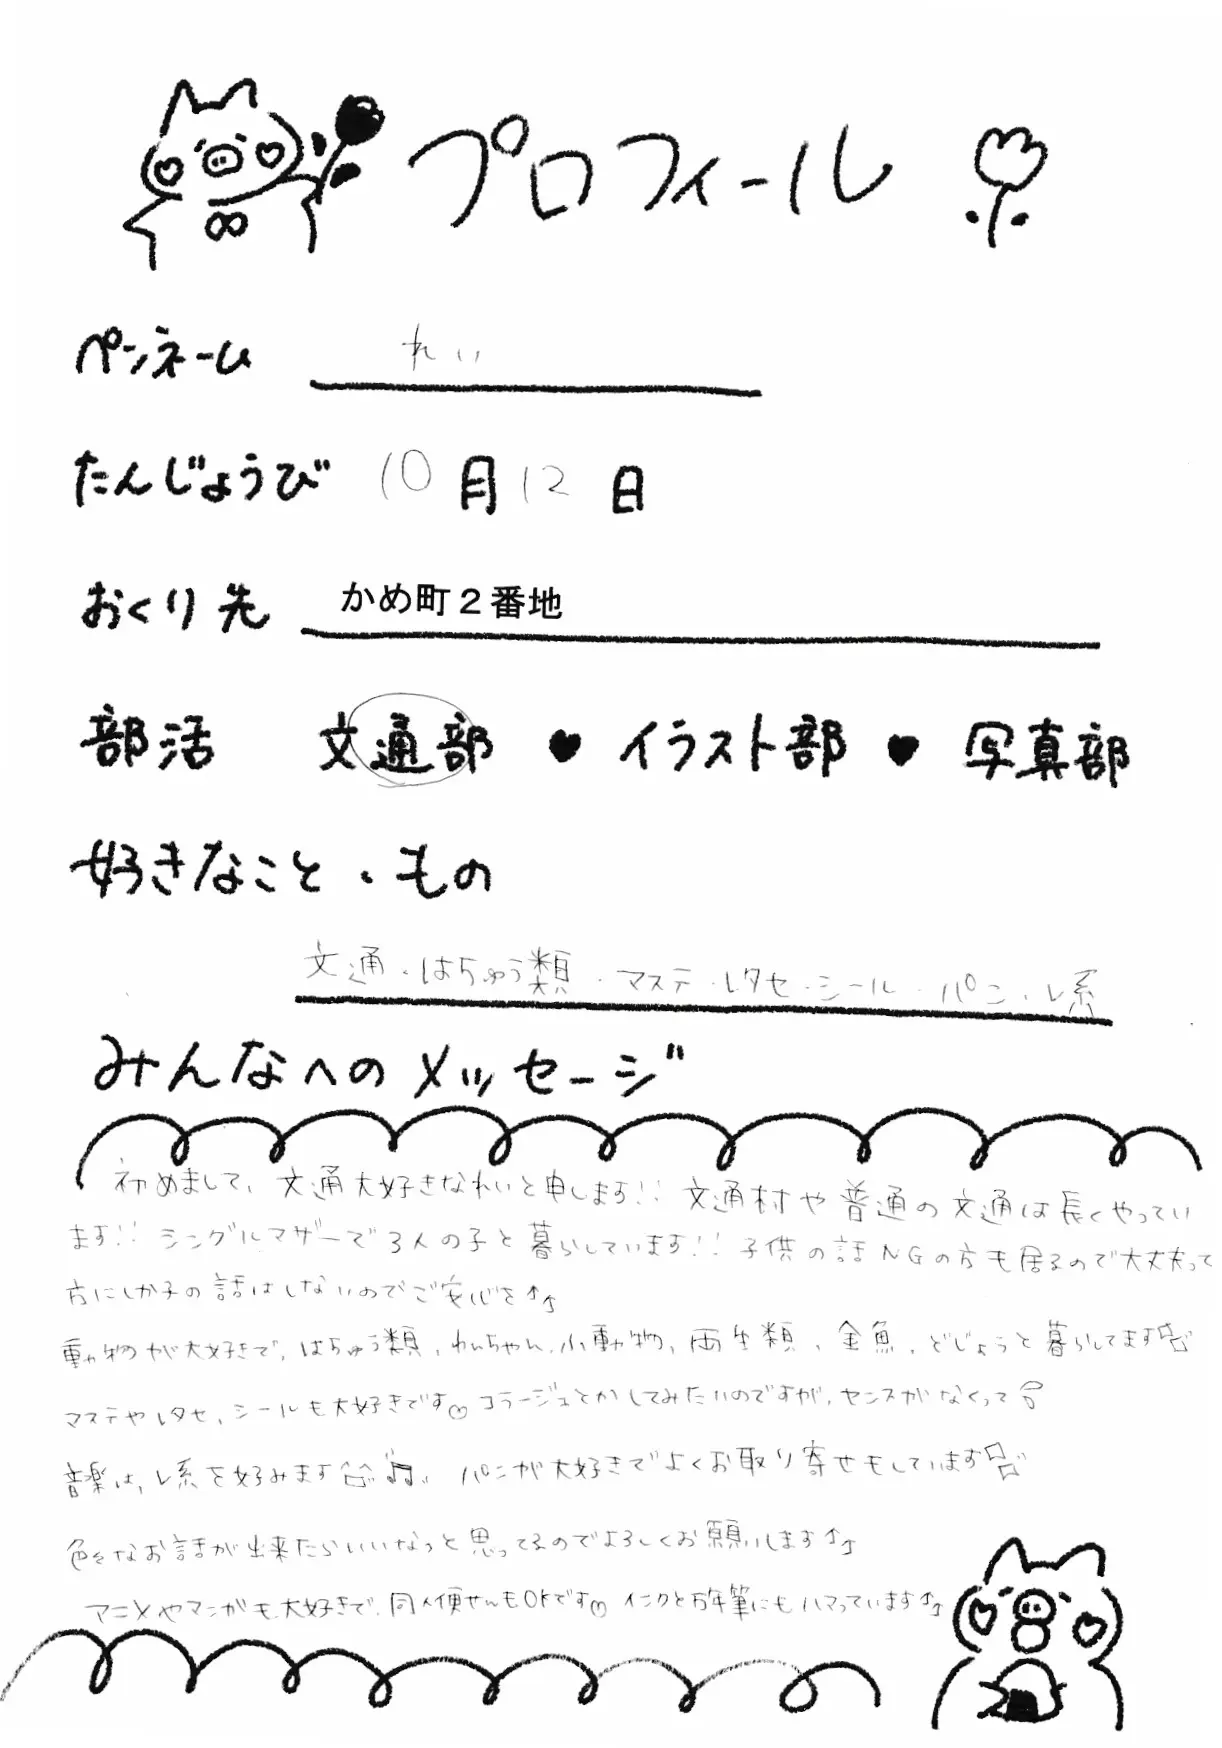 プロフィール
ペンネーム れい
たんじょうび 10月12日
おくり先 かめ町2番地
部活 文通部 ♥ イラスト部 ♥ 写真部
好きなこと・もの
文通・はちゅう類・マステ・レタセ・シール・パン・レ系
みんなへのメッセージ
初めまして、文通大好きなれいと申します!! 文通村や普通の文通は長くやってい
ます!! シングルマザーで3人の子と暮らしています!! 子供の話NGの方も居るので大丈夫って
方にしか子の話はしないのでご安心を↑↑
動物が大好きで、はちゅう類、わんちゃん、小動物、両生類、金魚、どじょうと暮らしてます
マステやレタセ、シールも大好きです♡ コラージュとかしてみたいのですが、センスがなくって
音楽は、レ系を好みます♫ パンが大好きでよくお取り寄せもしています
色々なお話が出来たらいいなっと思ってるのでよろしくお願いします↑↑
アニメやマンガも大好きで、同人便せんもOKです♡ インクと万年筆にもハマっています↑↑